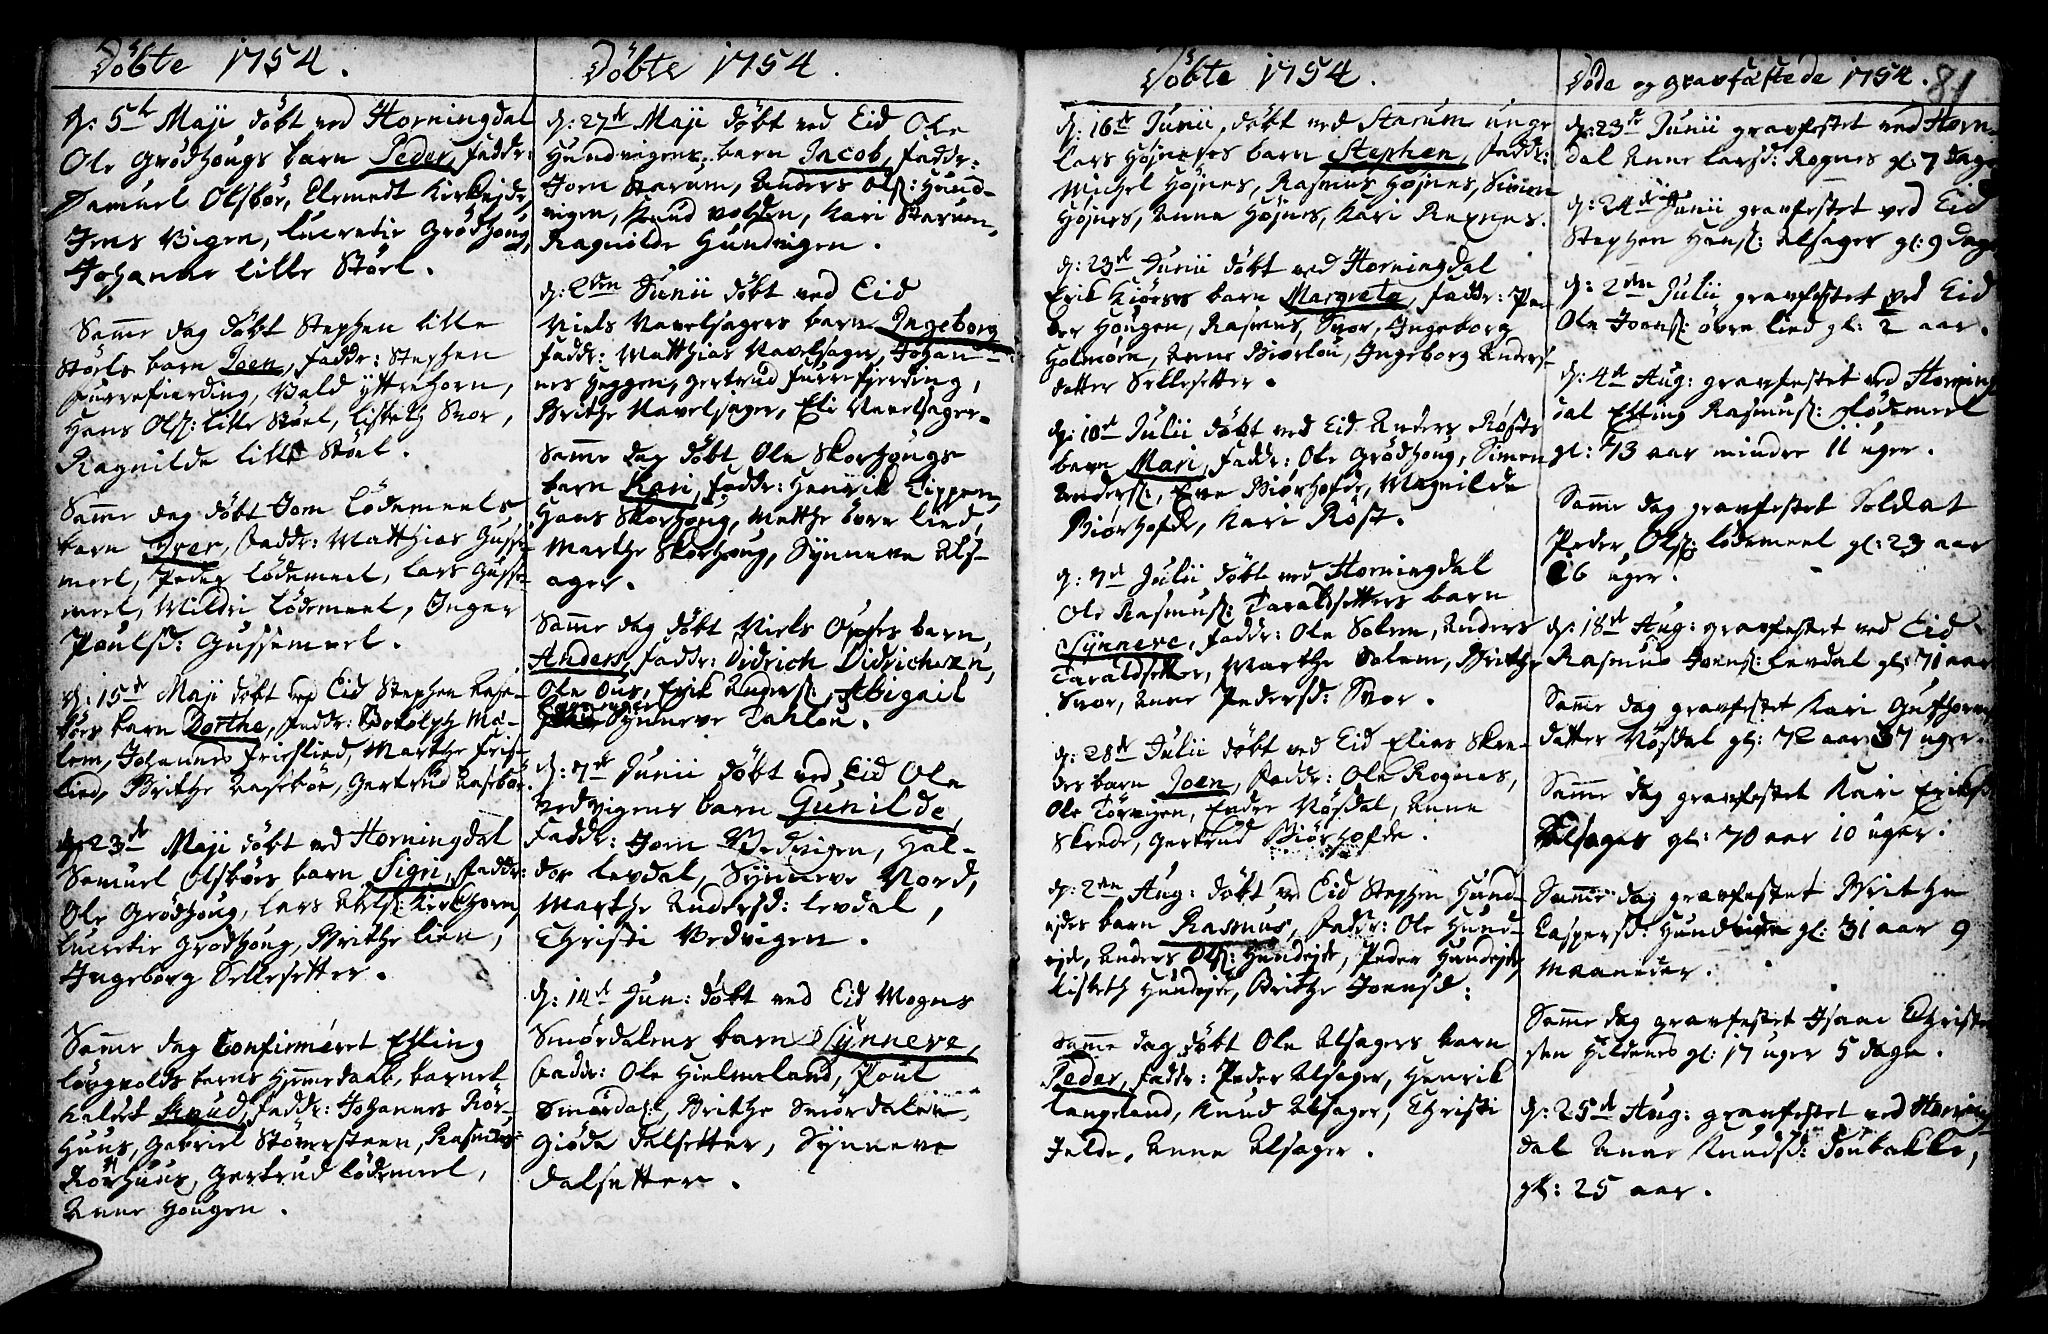 Döbte 1754.
d: 5te Maji döbt ved Horningdal
Ole Grödhougs barn Peder, faddr:
Samuel Olsbör, Clemedt Kirkejde,
Jens Vigen, Lucretie Grödhoug,
Johanne lille Störl.
Samme dag döbt Stephen lille
Störls barn Joen, faddr: Stephen
furrefierding, Bald ÿttrehorn,
Hans Olss: lille Störl, Lisbeth Svor,
Ragnilde lille Störl.
Samme dag döbt Joen Lödemeels
barn Iver, faddr: Matthias Gusse-
meel, Peder Lödemeel, Lars Gusse-
meel, Mildri Lödemeel, Inger
Poulsd: Gussemeel.
d: 15de Maji döbt ved Eid Stephen Aase-
börs barn Dorthe, faddr: Bodolph Mæ-
lem, Johannes frieslied, Marthe fris-
lied, Brithe Aasebör, Gertrud Aasebör.
d: 23de Maji döbt ved Horningdal
Samuel Olsbörs barn Sigri, faddr:
Ole Grödhoug, Lars Abels: Kirkhorn,
Lucretie Grödhoug, Brithe lien,
Ingeborg Sellesetter.
Samme dag Confirmeret Elling
Langvolds barns Hjemmedaab, barnet
kaldet Knud, faddr: Johannes Rör-
huus, Gabriel Störersteen, Rasmus
Rörhuus, Gertrud Lödemeel,
Anne Hougen.
Döbte 1754.
d: 27de Maji döbt ved Eid Ole
Hundvigens barn Jacob, faddr:
Joen Starum, Anders Olss: Hund-
vigen, Knud volden, Kari Starum,
Ragnilde Hundvigen.
d: 2den Junii döbt ved Eid
Niels Navelsagers barn Ingeborg
faddr: Matthias Navelsager, Johan-
nes Heggen, Gertrud furrefjerding,
Brithe Navelsager, Eli Navelsager.
Samme dag döbt Ole Skorhougs
barn Kari, faddr: Henrik
Hans Skorhoug, Matthe övre lied,
Marthe Skorhoug, Sÿnneve Als-
ager.
Samme dag döbt Niels Ouses barn,
Anders, faddr: Didrich Didrichsen,
Ole Ous, Erik Anderss: Abigail
Sÿnneve Taklou.
d: 7de Junii döbt ved Eid Ole
Vedvigens barn Gunilde,
faddr: Joen Vedvigen, Hal-
dor Levdal, Sÿnneve Nord,
Marthe Andersd: Levdal,
Christi Vedvigen.
d: 14de Jun: döbt ved Eid Mogens
Smördalens barn Sÿnneve,
faddr: Ole Hielmeland, Poul
Smördal, Brithe Smördalen,
Giöde Dalsetter, Sÿnneve
Dalsetter.
Döbte 1754.
d: 16de Junii, döbt ved Starum unge
Lars Höjneses barn Stephen, faddr:
Michel Höjnes, Rasmus Höjnes, Simen
Höjnes, Anne Höjnes, Kari Raxnes.
d: 23de Junii döbt ved Horningdal
Erik Kiörses barn Margrete, faddr: Pe-
der Hougen, Rasmus Svor, Ingeborg
Holmöen, Anne Biörlou, Ingeborg Anders-
datter Sellesetter.
d: 10de Julii döbt ved Eid Anders Rösts
barn Mari, faddr: Ole Grödhoug, Simen
Anderss:, Eve Biörhofde, Magnilde
Biörhofde, Kari Röst.
d: 7de Julii döbt ved Horningdal
Ole Rasmuss: Taraldsetters barn
Sÿnneve, faddr: Ole Solem, Anders
Taraldsetter, Marthe Solem, Brithe
Svor, Anne Pedersd: Svor.
d: 28de Julii döbt ved Eid Elias Skre-
des barn Joen, faddr: Ole Rognes,
Ole Törvigen, Endre Nösdal, Anne
Skrede, Gertrud Biörhofde.
d: 2den Aug: döbt ved Eid Stephen Hund-
ejdes barn Rasmus, faddr: Ole Hund-
ejde, Anders Olss: Hundejde, Peder Hundejde,
Lisbeth Hundejde, Brithe Joensd:
Samme dag döbt Ole Alsagers barn
Peder, faddr: Peder Alsager, Henrik
Langeland, Knud Alsager, Christi
Jelde, Anne Alsager.
Döde og gravfæstede 1754. 81
d: 23de Junii gravfestet ved Horning-
dal Anne Larsd: Rognes gl: 7 dage
d: 24de Junii gravfestet ved Eid
Stephen Hanss: Alsager gl: 9 dage
d: 2den Julii gravfestet ved Eid
Ole Joenss: övre lied gl: 2 aar.
d: 4de Aug: gravfestet ved Horning-
dal Elling Rasmuss: Lödemeel
gl: 73 aar mindre 11 uger.
Samme dag gravfestet Soldat
Peder Olss: Lödemeel gl: 23 aar
26 uger.
d: 18de Aug: gravfestet ved Eid
Rasmus Joenss: Levdal gl: 71 aar
Samme dag gravfestet Kari Guthorms
datter Nösdal gl: 72 aar 37 uger.
Samme dag gravfestet Kari Eriksd:
Alsager gl: 70 aar 10 uger.
Samme dag gravfestet Brithe
Caspersd: Hundvigen gl: 31 aar 9
maaneder.
Samme dag gravfestet Isaac Christen-
sen Hildenes gl: 17 uger 5 dage.
d: 25de Aug: gravfestet ved Horning
dal Anne Knudsd: Döubakke,
gl: 25 aar.